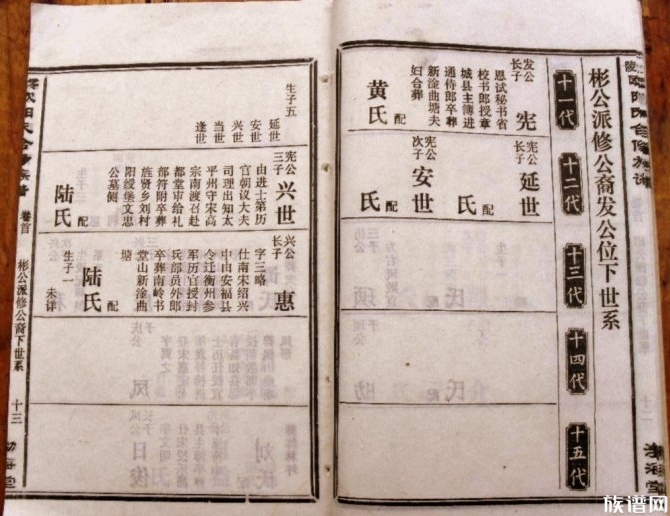 彬公派修公裔发公位下世系
十一代
十二代
十三代
十四代
十五代
发公
长子
宪
恩试秘书省
校书郎授章
城县主簿进
通侍郎卒葬
新淦曲塘夫
妇合葬
配
黄氏
宪公
长子
延世
配
氏
宪公
次子
安世
配
氏
生子五
延世
安世
兴世
当世
逢世
宪公
三子
兴世
由进士第历
官朝议大夫
司理出知太
平州守宋高
宗南渡召赴
都堂审给礼
部符附卒葬
旌贤乡刘村
阳绥堡文忠
公墓侧
配
陆氏
兴公
长子
惠
字三略
仕南宋绍兴
中由安福县
令迁衡州参
军历官授封
兵部员外郎
卒葬南岭书
堂山新淦曲
塘
配
陆氏
生子一
未详
卷首
彬公派修公裔下世系
十三
族谱网